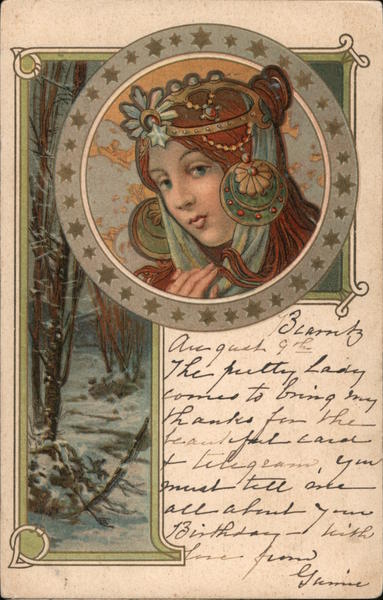 Biarritz
August 9th
The pretty Lady
comes to bring my
thanks for the
beautiful card
& telegram, you
must tell me
all about your
Birthday – with
love from